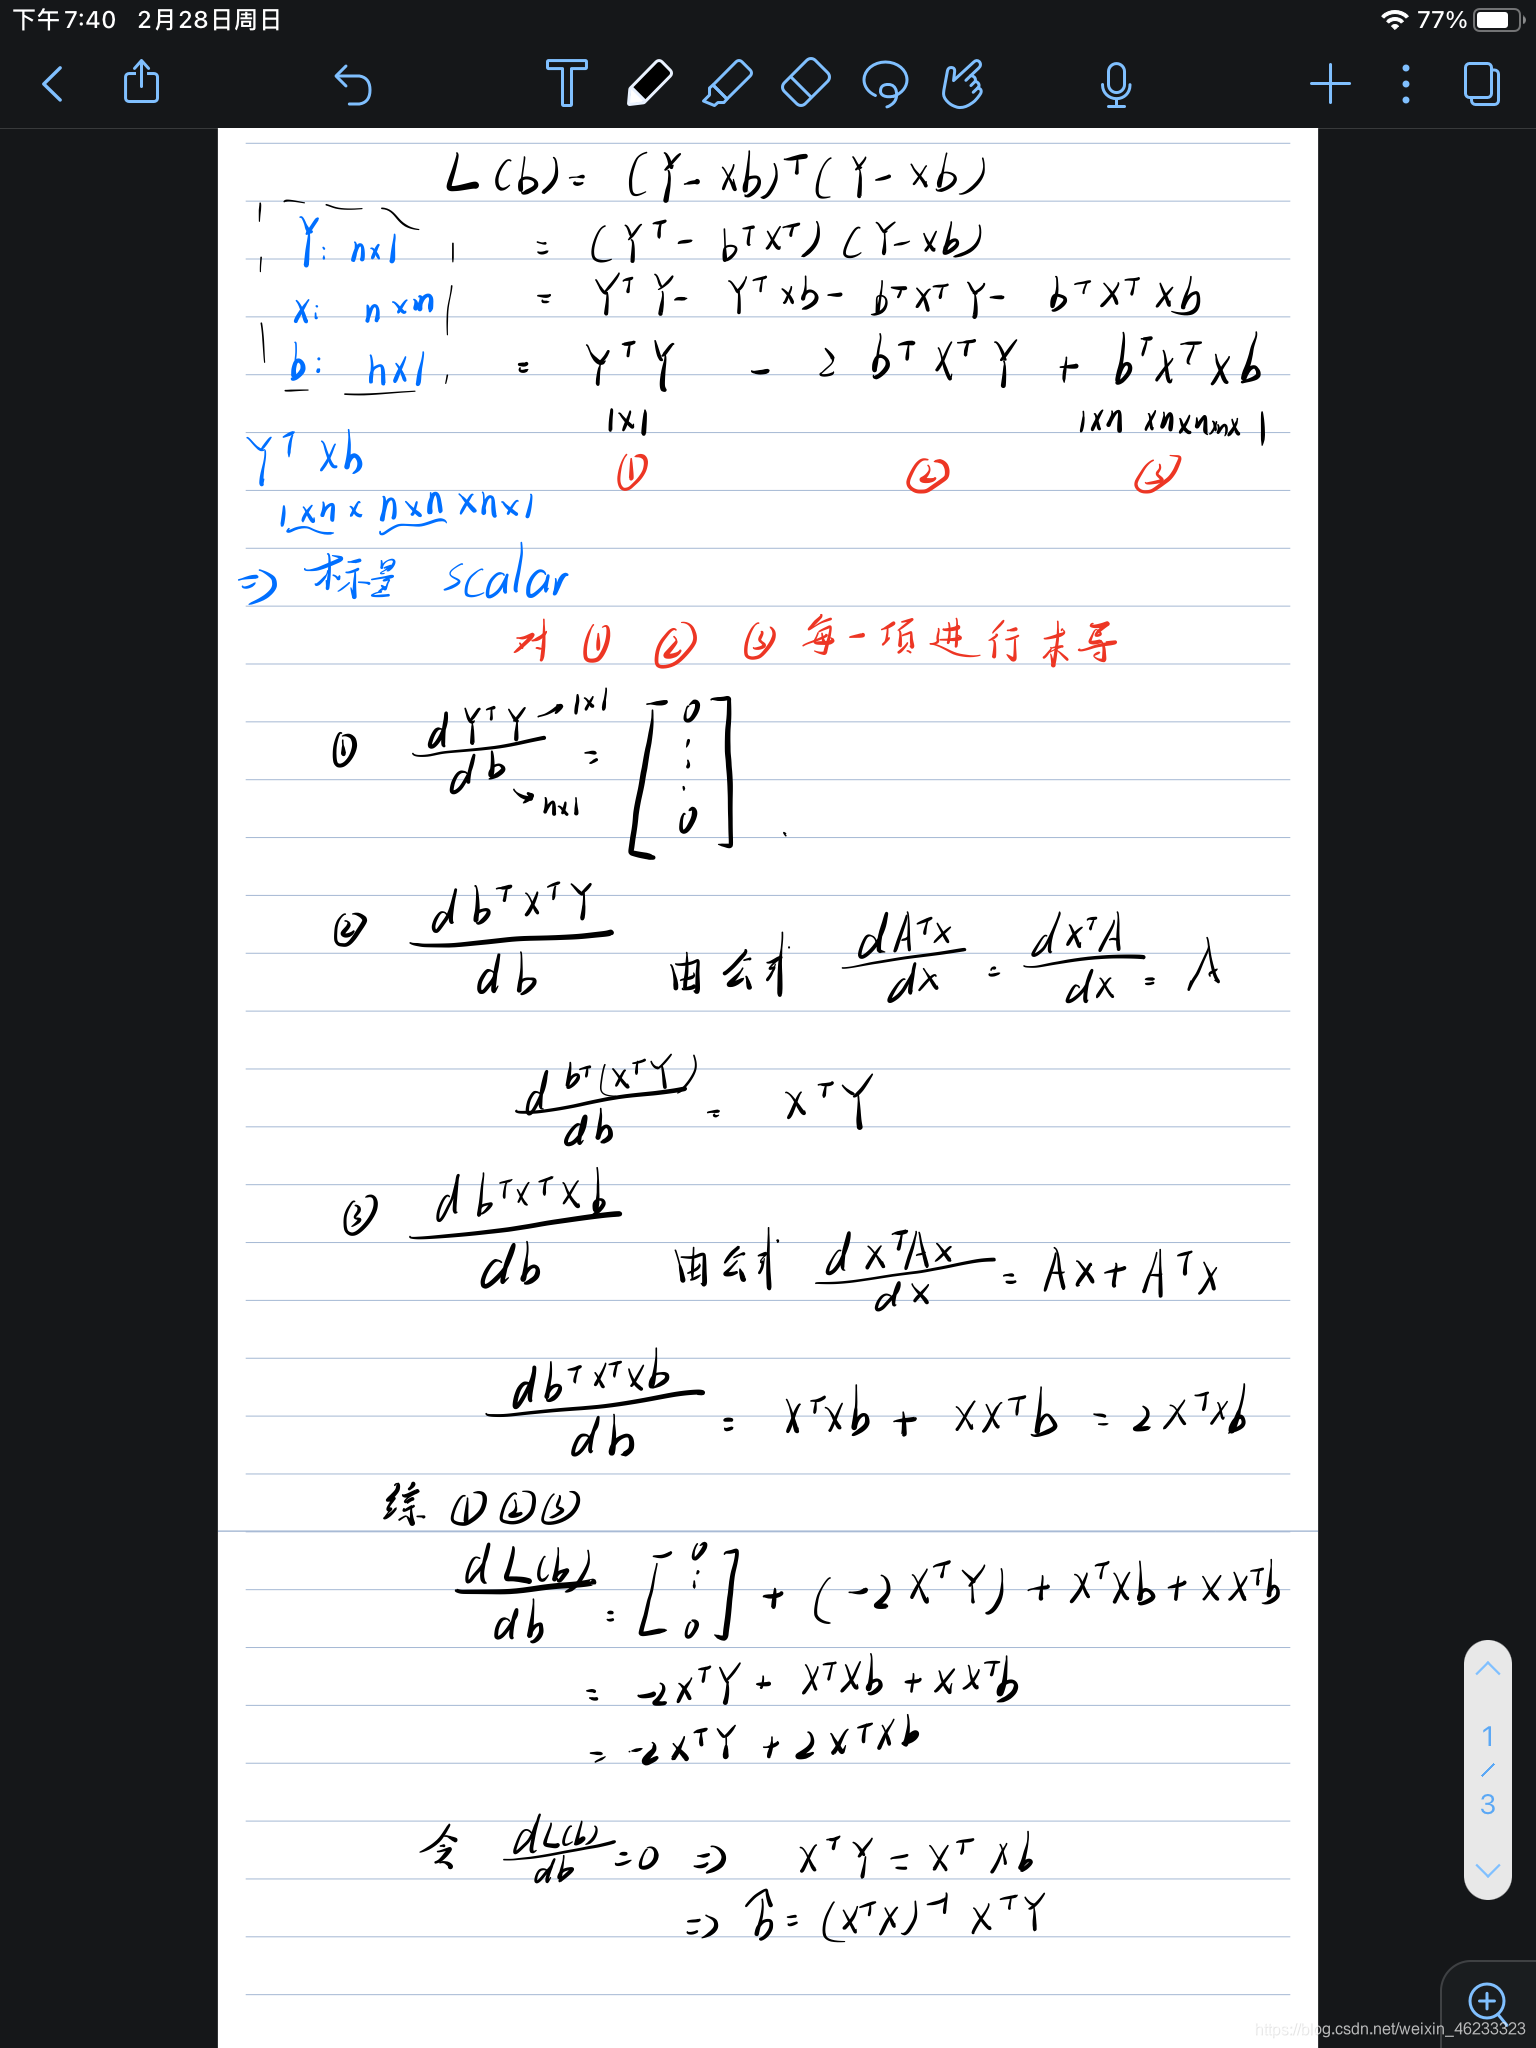 下午7:40 2月28日周日 77%
L(b) = (Y - Xb)ᵀ(Y - Xb)
Y: n×1 = (Yᵀ - bᵀXᵀ)(Y - Xb)
X: n×n = YᵀY - YᵀXb - bᵀXᵀY - bᵀXᵀXb
b: n×1 = YᵀY - 2bᵀXᵀY + bᵀXᵀXb
1×1 1×n ×n×n×n×1
① ② ③
YᵀXb
1×n × n×n ×n×1
=> 标量 scalar
对 ① ② ③ 每一项进行求导
① dYᵀY → 1×1 / db → n×1 = [0 ⋮ 0]
② dbᵀXᵀY / db 由公式 dAᵀx / dx = dxᵀA / dx = A
dbᵀ(XᵀY) / db = XᵀY
③ dbᵀXᵀXb / db 由公式 dxᵀAx / dx = Ax + Aᵀx
dbᵀXᵀXb / db = XᵀXb + XXᵀb = 2XᵀXb
综 ①②③
dL(b) / db = [0 ⋮ 0] + (-2XᵀY) + XᵀXb + XXᵀb
= -2XᵀY + XᵀXb + XXᵀb
= -2XᵀY + 2XᵀXb
令 dL(b) / db = 0 => XᵀY = XᵀXb
=> b̂ = (XᵀX)⁻¹XᵀY
1
/
3
https://blog.csdn.net/weixin_46233323